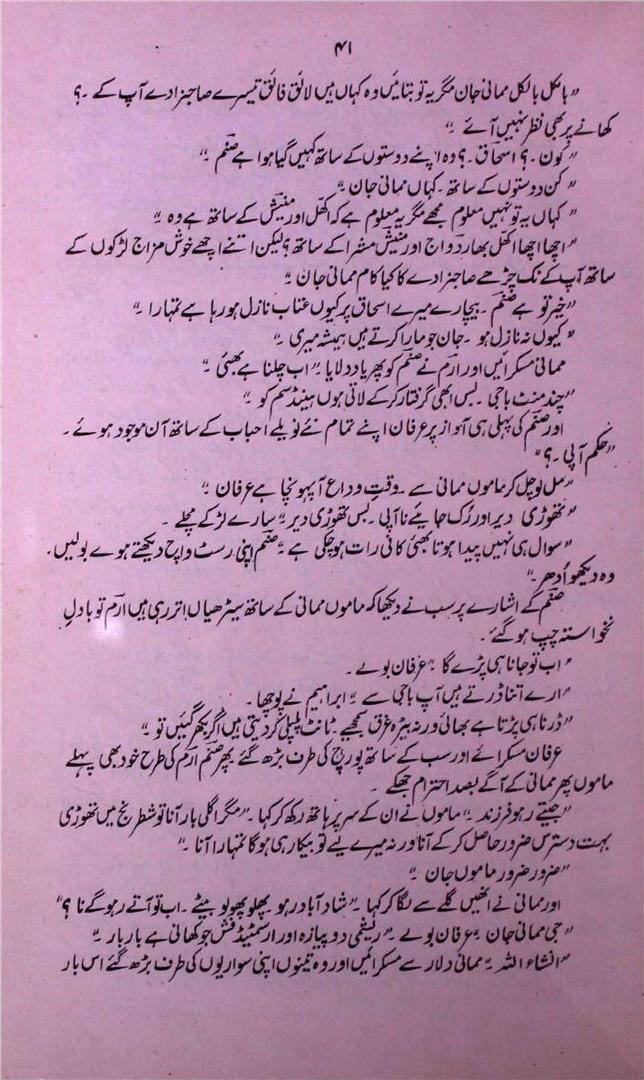 ۴۱
”بالکل بالکل ممانی جان مگر یہ تو بتائیں وہ کہاں ہیں لائق فائق تیسرے صاحبزادے آپ کے ۔؟
کھانے پر بھی نظر نہیں آئے ۔“
”کون ۔؟ اسحاق ۔؟ وہ اپنے دوستوں کے ساتھ کہیں گیا ہوا ہے صنم ۔“
”کن دوستوں کے ساتھ ۔ کہاں ممانی جان ۔“
”کہاں یہ تو نہیں معلوم مجھے مگر یہ معلوم ہے کہ اکھل اور منیش کے ساتھ ہے وہ ۔“
”اچھا اچھا اکھل بھاردواج اور منیش مشرا کے ساتھ؟ لیکن اتنے اچھے خوش مزاج لڑکوں کے
ساتھ آپ کے نک چڑھے صاحبزادے کا کیا کام ممانی جان ۔“
”خیر تو ہے صنم ۔ بیچارے میرے اسحاق پر کیوں عتاب نازل ہو رہا ہے تمہارا ۔“
”کیوں نہ نازل ہو ۔ جان جو مارا کرتے ہیں ہمیشہ میری ۔“
ممانی مسکرائیں اور ارم نے صنم کو پھر یاد دلایا ”اب چلنا ہے بھئی ۔“
”چند منٹ باجی ۔ بس ابھی گرفتار کر کے لاتی ہوں ہینڈسم کو ۔“
اور صنم کی پہلی ہی آواز پر عرفان اپنے تمام نئے نویلے احباب کے ساتھ آن موجود ہوئے ۔
”حکم آپی ۔؟“
”مل لو چل کر ماموں ممانی سے ۔ وقتِ وداع آ پہونچا ہے عرفان ۔“
”تھوڑی دیر اور رک جائیے نا آپی ۔ بس تھوڑی دیر“ سارے لڑکے مچلے ۔
”سوال ہی نہیں پیدا ہوتا بھئی کافی رات ہو چکی ہے“ صنم اپنی رسٹ واچ دیکھتے ہوئے بولیں۔
وہ دیکھو اُدھر ۔“
صنم کے اشارے پر سب نے دیکھا کہ ماموں ممانی کے ساتھ سیڑھیاں اتر رہی ہیں ارم تو بادلِ
نخواستہ چپ ہو گئے ۔
”اب تو جانا ہی پڑے گا“ عرفان بولے ۔
”ارے اتنا ڈرتے ہیں آپ باجی سے“ ابراہیم نے پوچھا ۔
”ڈرنا ہی پڑتا ہے بھائی ورنہ بیڑہ غرق سمجھیے ۔ ٹانٹ پلپلی کر دیتی ہیں اگر بکھر گئیں تو ۔“
عرفان مسکرائے اور سب کے ساتھ پورچ کی طرف بڑھ گئے پھر صنم ارم کی طرح خود بھی پہلے
ماموں پھر ممانی کے آگے بعد احترام جھکے ۔
”جیتے رہو فرزند“ ماموں نے ان کے سر پر ہاتھ رکھ کر کہا ۔ ”مگر اگلی بار آنا تو شطرنج میں تھوڑی
بہت دسترس ضرور حاصل کر کے آنا ورنہ میرے لیے تو بیکار ہی ہوگا تمہارا آنا ۔“
”ضرور ضرور ماموں جان ۔“
اور ممانی نے انھیں گلے سے لگا کر کہا ۔ ”شاد آباد رہو ۔ پھلو پھولو بیٹے ۔ اب تو آتے رہو گے نا؟“
”جی ممانی جان“ عرفان بولے ۔ ”ریغمی دوپیازہ اور اسٹمیڈ فش جو کھانی ہے بار بار ۔“
”انشاء اللہ“ ممانی دلار سے مسکرائیں اور وہ تینوں اپنی سواریوں کی طرف بڑھ گئے اس بار